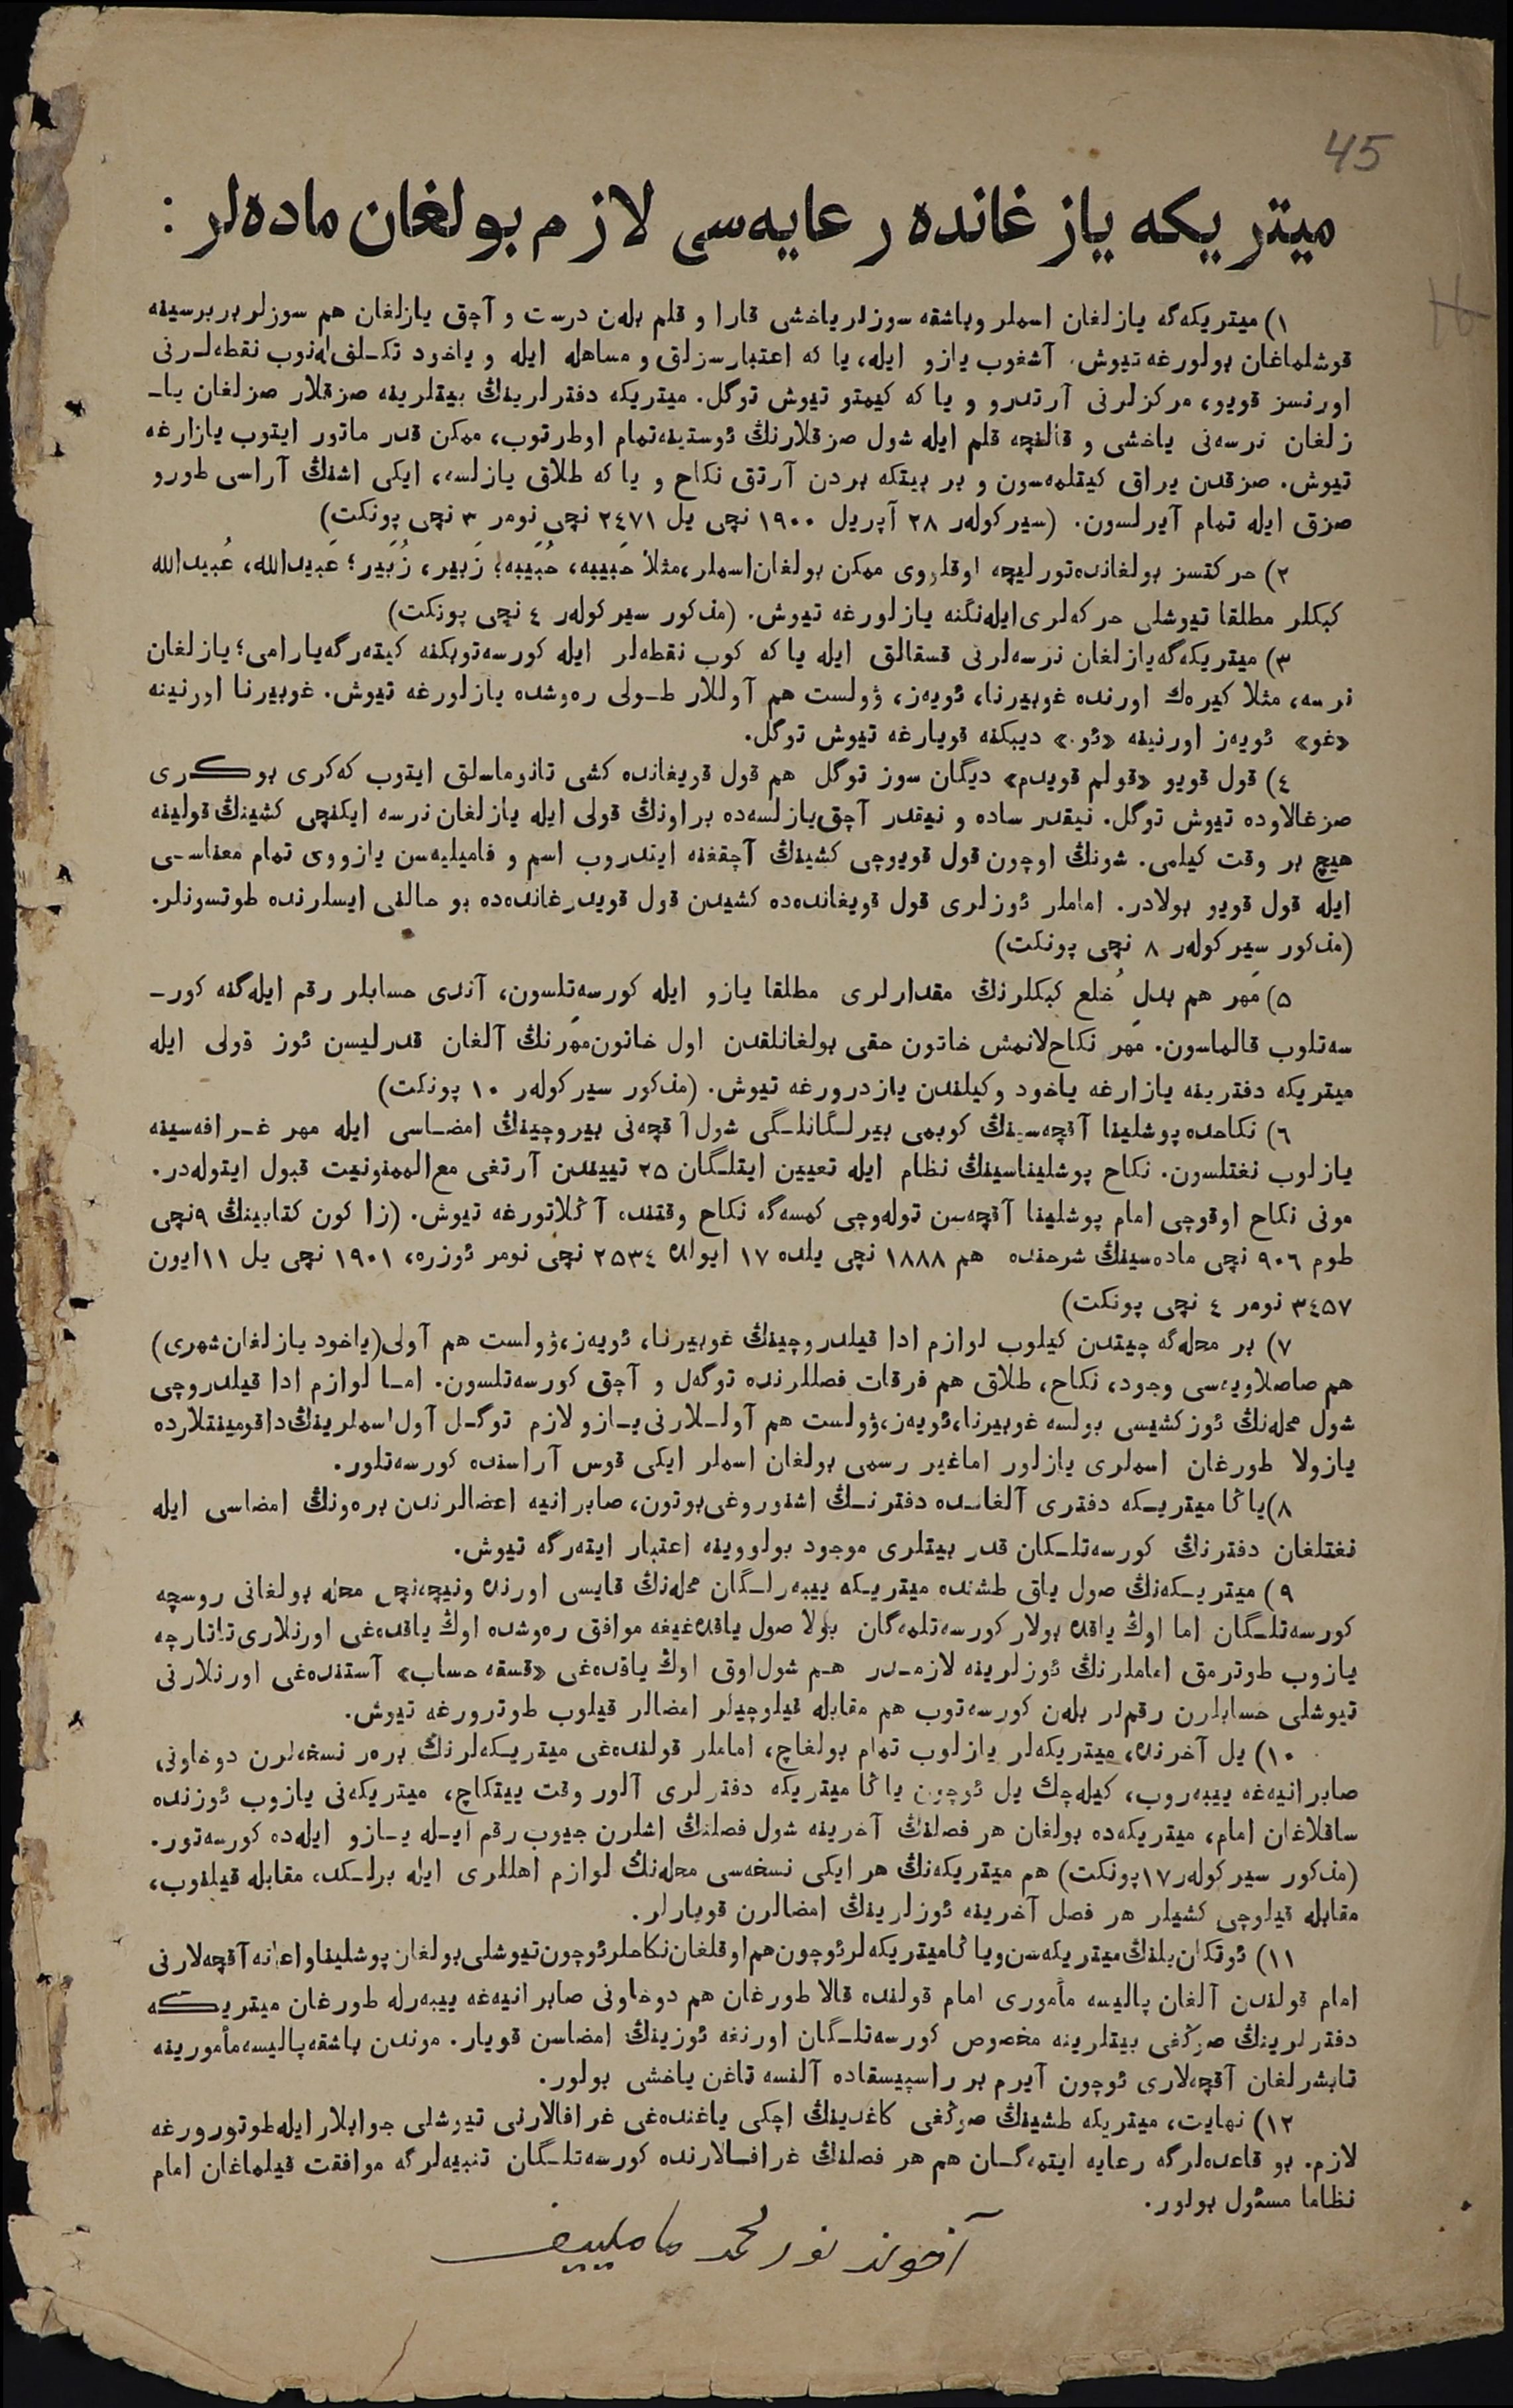 45
میتریکه یازغانده رعایه‌سی لازم بولغان ماده‌لر :
۱) میتریکه‌گه یازلغان اسملر وباشقه سوزلر یاخشی قارا و قلم بله‌ن درست و آچق یازلغان هم سوزلر بربرسینه
قوشلماغان بولورغه تیوش. آشغوب یازو ایله، یا که اعتبارسزلق و مساهله ایله و یاخود تکلف له‌نوب نقطه‌لرنی
اورنسز قویو، مرکزلرنی آرتدرو و یا که کیمتو تیوش توگل. میتریکه دفترلرینڭ بیتلرینه صزقلار صزلغان یا-
زلغان نرسه‌نی یاخشی و قالنچه قلم ایله شول صزقلارنڭ ئوستینه‌تمام اوطرتوب، ممکن قدر ماتور ایتوب یازارغه
تیوش. صزقدن یراق کیتلمه‌سون و بر بیتکه بردن آرتق نکاح و یا که طلاق یازلسه، ایکی اشنڭ آراسی طورو
صزق ایله تمام آیرلسون. (سیرکوله‌ر ۲۸ آپریل ۱۹۰۰ نچی یل ۲٤۷۱ نچی نومر ۳ نچی پونکت)
۲) حرکتسز بولغانده‌تورلیچه اوقلووی ممکن بولغان‌اسملر،مثلا حَبیبه، حُبَیبه؛ زَبیر، زُبَیر؛ عَبیدالله، عُبیدالله
کبکلر مطلقا تیوشلی حرکه‌لری‌ایله‌نگنه یازلورغه تیوش. (مذکور سیرکوله‌ر ٤ نچی پونکت)
۳) میتریکه‌گه‌یازلغان نرسه‌لرنی قسقالق ایله یا که کوب نقطه‌لر ایله کورسه‌توبکنه کیته‌رگه‌یارامی؛ یازلغان
نرسه، مثلا کیره‌ك اورنده غوبیرنا، ئویه‌ز، ۋولست هم آوللار طولی ره‌وشده یازلورغه تیوش. غوبیرنا اورنینه
«غو» ئویه‌ز اورنینه «ئو.» دیبکنه قویارغه تیوش توگل.
٤) قول قویو «قولم قویدم» دیگان سوز توگل هم قول قویغانده کشی تانوماسلق ایتوب که‌کری بوکری
صزغالاوده تیوش توگل. نیقدر ساده و نیقدر آچق‌یازلسه‌ده براونڭ قولی ایله یازلغان نرسه ایکنچی کشینڭ قولینه
هیچ بر وقت کیلمی. شونڭ اوچون قول قویوچی کشینڭ آچقغنه ایتدروب اسم و فامیلیه‌سن یازووی تمام معناسی
ایله قول قویو بولادر. اماملر ئوزلری قول قویغانده‌ده کشیدن قول قویدرغانده‌ده بو حالنی ایسلرنده طوتسونلر.
(مذکور سیرکوله‌ر ۸ نچی پونکت)
۵) مَهر هم بدلِ خُلع کبکلرنڭ مقدارلری مطلقا یازو ایله کورسه‌تلسون، آندی حسابلر رقم ایله‌گنه کور-
سه‌تلوب قالماسون. مَهر نکاح‌لانمش خاتون حقی بولغانلقدن اول خاتون‌مَهرنڭ آلغان قدرلیسن ئوز قولی ایله
میتریکه دفترینه یازارغه یاخود وکیلندن یازدرورغه تیوش. (مذکور سیرکوله‌ر ۱۰ پونکت)
٦) نکاحده پوشلینا آقچه‌سینڭ کوبمی بیرلگانلگی شول آقچه‌نی بیروچینڭ امضاسی ایله مهر غرافه‌سینه
یازلوب نغتلسون. نکاح پوشلیناسینڭ نظام ایله تعیین ایتلگان ۲۵ تییندن آرتغی مع‌الممنونیت قبول ایتوله‌در.
مونی نکاح اوقوچی امام پوشلینا آقچه‌سن توله‌وچی کمسه‌گه نکاح وقتنده آڭلاتورغه تیوش. (زاکون کتابینڭ ۹نچی
طوم ۹۰٦ نچی ماده‌سینڭ شرحنده هم ۱۸۸۸ نچی یلده ۱۷ ایولده ۲۵۳٤ نچی نومر ئوزره، ۱۹۰۱ نچی یل ۱۱ایون
۳٤۵۷ نومر ٤ نچی پونکت)
۷) بر محله‌گه چیتدن کیلوب لوازم ادا قیلدروچینڭ غوبیرنا، ئویه‌ز،ۋولست هم آولی(یاخود یازلغان‌شهری)
هم صاصلاویه‌سی وجود، نکاح، طلاق هم فرقات فصللرنده توگه‌ل و آچق کورسه‌تلسون. اما لوازم ادا قیلدروچی
شول محله‌نڭ ئوزکشیسی بولسه غوبیرنا،ئویه‌ز،ۋولست هم آوللارنی یازو لازم توگل آول‌اسملرینڭ‌داقومینتلارده
یازولا طورغان اسملری یازلور اماغیر رسمی بولغان اسملر ایکی قوس آراسنده کورسه‌تلور.
۸)یاڭا میتریکه دفتری آلغانده دفترنڭ اشنوروغی‌بوتون، صابرانیه اعضالرندن بره‌ونڭ امضاسی ایله
نغتلغان دفترنڭ کورسه‌تلکان قدر بیتلری موجود بولووینه اعتبار ایته‌رگه تیوش.
۹) میتریکه‌نڭ صول یاق طشنده میتریکه ییبه‌رلگان محله‌نڭ قایسی اورنده ونیچه‌نچی محله بولغانی روسچه
کورسه‌تلگان اما اوڭ یاقده بولار کورسه‌تلمه‌گان بولا صول یاقده‌غیغه موافق ره‌وشده اوڭ یاقده‌غی اورنلاری‌تاتارچه
یازوب طوترمق اماملرنڭ ئوزلرینه لازمدر هم شول‌اوق اوڭ یاقده‌غی «قسقه حساب» آستنده‌غی اورنلارنی
تیوشلی حسابلرن رقملر بله‌ن کورسه‌توب هم مقابله قیلوچیلر امضالر قیلوب طوترورغه تیوش.
۱۰) یل آخرنده، میتریکه‌لر یازلوب تمام بولغاچ، اماملر قولنده‌غی میتریکه‌لرنڭ بره‌ر نسخه‌لرن دوخاونی
صابرانیه‌غه ییبه‌روب، کیله‌چك یل ئوچون یاڭا میتریکه دفترلری آلور وقت ییتکاچ، میتریکه‌نی یازوب ئوزنده
ساقلاغان امام، میتریکه‌ده بولغان هر فصلنڭ آخرینه شول فصلنڭ اشلرن جیوب رقم ایله یازو ایله‌ده کورسه‌تور.
(مذکور سیرکوله‌ر ۱۷پونکت) هم میتریکه‌نڭ هر ایکی نسخه‌سی محله‌نڭ لوازم اهللری ایله برلکده مقابله قیلنوب،
مقابله قیلوچی کشیلر هر فصل آخرینه ئوزلرینڭ امضالرن قویارلر.
۱۱) ئوتکان‌یلنڭ‌میتریکه‌سن‌ویاڭامیتریکه‌لرئوچون‌هم‌اوقلغان‌نکاحلرئوچون‌تیوشلی‌بولغان‌پوشلیناواعانه‌آقچه‌لارنی
امام قولندن آلغان پالیسه مأموری امام قولنده قالا طورغان هم دوخاونی صابرانیه‌غه ییبه‌رله طورغان میتریکه
دفترلرینڭ صوڭغی بیتلرینه مخصوص کورسه‌تلگان اورنغه ئوزینڭ امضاسن قویار. موندن باشقه‌پالیسه‌مأمورینه
تابشرلغان آقچه‌لاری ئوچون آیرم بر راسپیسقاده آلنسه تاغن یاخشی بولور.
۱۲) نهایت، میتریکه طشینڭ صوڭغی کاغدینڭ اچکی یاغنده‌غی غرافالارنی تیوشلی جوابلار ایله‌طوتورورغه
لازم. بو قاعده‌لرگه رعایه ایتمه‌گان هم هر فصلنڭ غرافالارنده کورسه‌تلگان تنبیه‌لرگه موافقت قیلماغان امام
نظاما مسئول بولور.
آخوند نورمحمد ماملییف